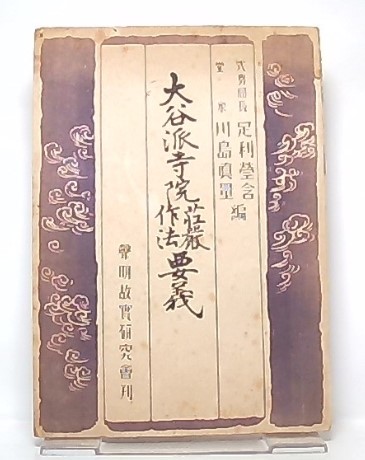 式務部長 足利瑩含
堂衆 川島眞量 編
大谷派寺院荘厳作法要義
聲明故實研究會刊